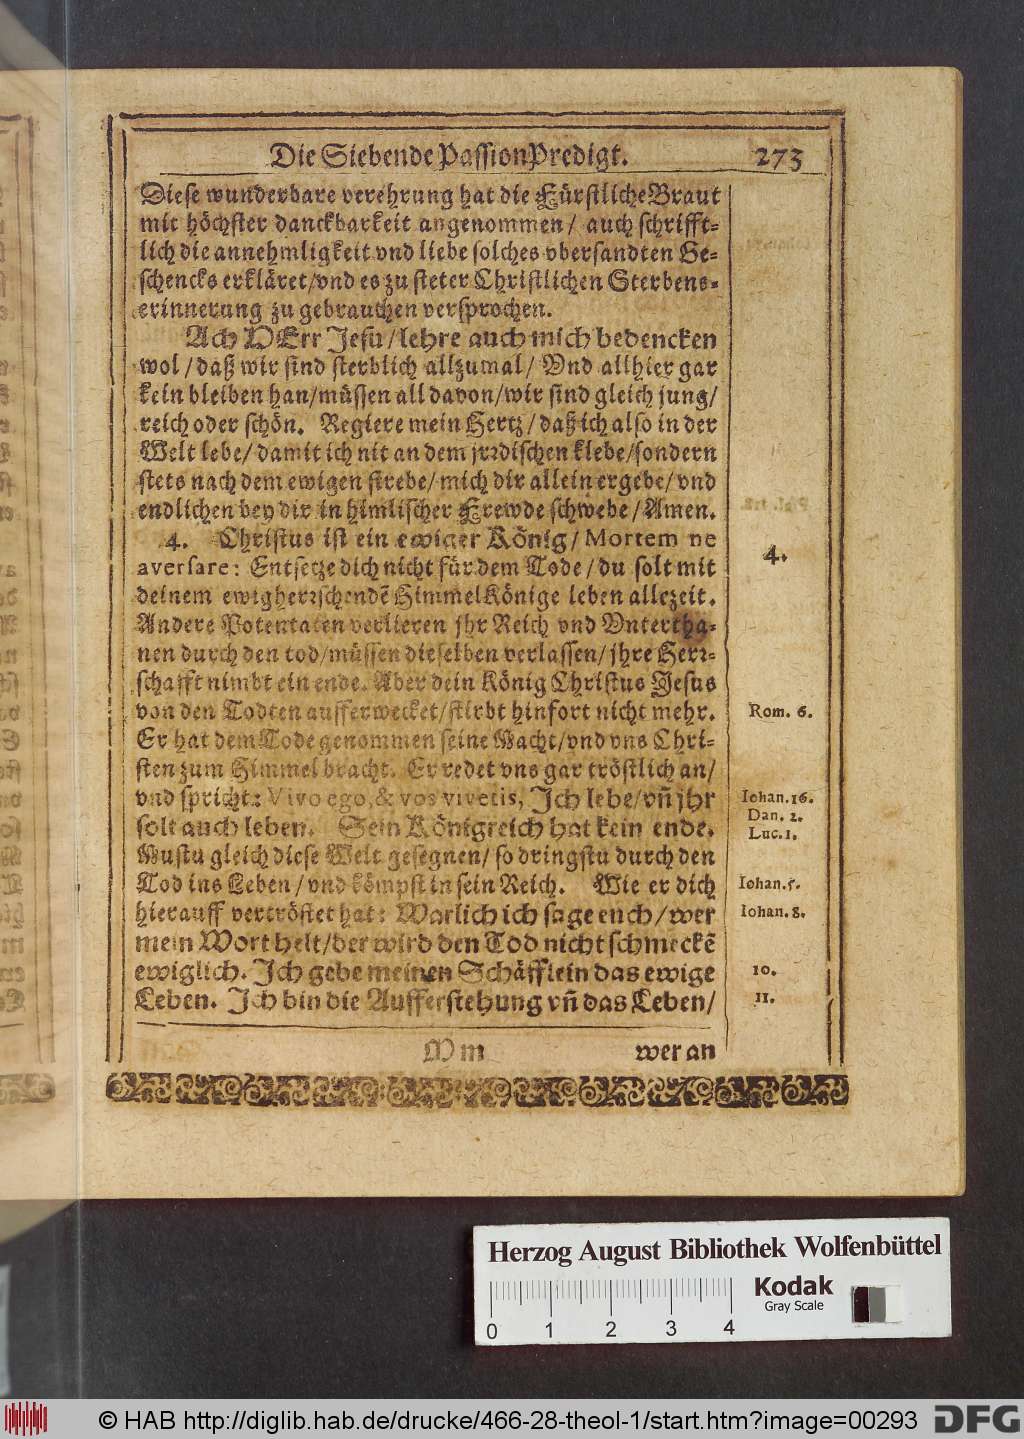 Die Siebende PassionPredigt. 273
Diese wunderbare verehrung hat die Fürstliche Braut
mit höchster danckbarkeit angenommen / auch schrifft-
lich die annehmligkeit vnd liebe solches vbersandten Ge-
schencks erkläret/vnd es zu steter Christlichen Sterbens-
erinnerung zu gebrauchen versprochen.
Ach HErr Jesu / lehre auch mich bedencken
wol / daß wir sind sterblich allzumal / Vnd allhier gar
kein bleiben han/müssen all davon/wir sind gleich jung/
reich oder schön. Regiere mein Hertz / daß ich also in der
Welt lebe/ damit ich nit an dem jrrdischen klebe/sondern
stets nach dem ewigen strebe/ mich dir allein ergebe/ vnd
endlichen bey dir in himlischer Frewde schwebe / Amen.
4. Christus ist ein ewiger König / Mortem ne
aversare: Entsetze dich nicht für dem Tode / du solt mit
deinem ewigherrschendē HimmelKönige leben allezeit.
Andere Potentaten verlieren jhr Reich vnd Vntertha-
nen durch den tod/müssen dieselben verlassen/ jhre Herr-
schafft nimbt ein ende. Aber dein König Christus Jesus
von den Todten aufferwecket/stirbt hinfort nicht mehr.
Er hat dem Tode genommen seine Macht/vnd vns Chri-
sten zum Himmel bracht. Er redet vns gar tröstlich an/
vnd spricht: Vivo ego, & vos vivetis, Ich lebe/vñ jhr
solt auch leben. Sein Königreich hat kein ende.
Mustu gleich diese Welt gesegnen/ so dringstu durch den
Tod ins Leben / vnd kömpst in sein Reich. Wie er dich
hierauff vertröstet hat: Warlich ich sage euch / wer
mein Wort helt/der wird den Tod nicht schmeckē
ewiglich. Ich gebe meinen Schäfflein das ewige
Leben. Ich bin die Aufferstehung vñ das Leben/
M m wer an
4.
Rom. 6.
Iohan. 16.
Dan. 2.
Luc. 1.
Iohan. 5.
Iohan. 8.
10.
11.
Herzog August Bibliothek Wolfenbüttel
Kodak
Gray Scale
0 1 2 3 4
© HAB http://diglib.hab.de/drucke/466-28-theol-1/start.htm?image=00293
DFG